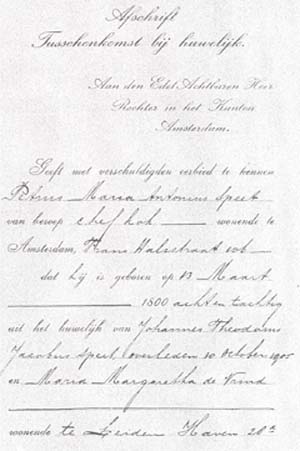 Afschrift
Tusschenkomst bij huwelijk.
Aan den Edel Achtbaren Heer
Rechter in het Kanton
Amsterdam.
Geeft met verschuldigden eerbied te kennen
Petrus Maria Antonius Speet
van beroep chef kok wonende te
Amsterdam, Frans Halsstraat
dat hij is geboren op 13 Maart
1800 acht en tachtig
uit het huwelijk van Johannes Theodorus
Jacobus Speet overleden 10 October 1905
en Maria Margaretha de Vrind
wonende te Leiden Haven 20a